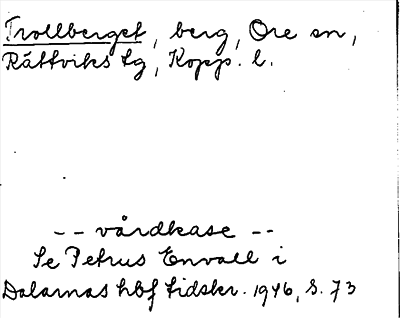 Trollberget, berg, Ore sn,
Rättviks tg, Kopp. l.
-- vårdkase --
Se Petrus Envall i
Dalarnas hbf tidskr. 1946, s. 73